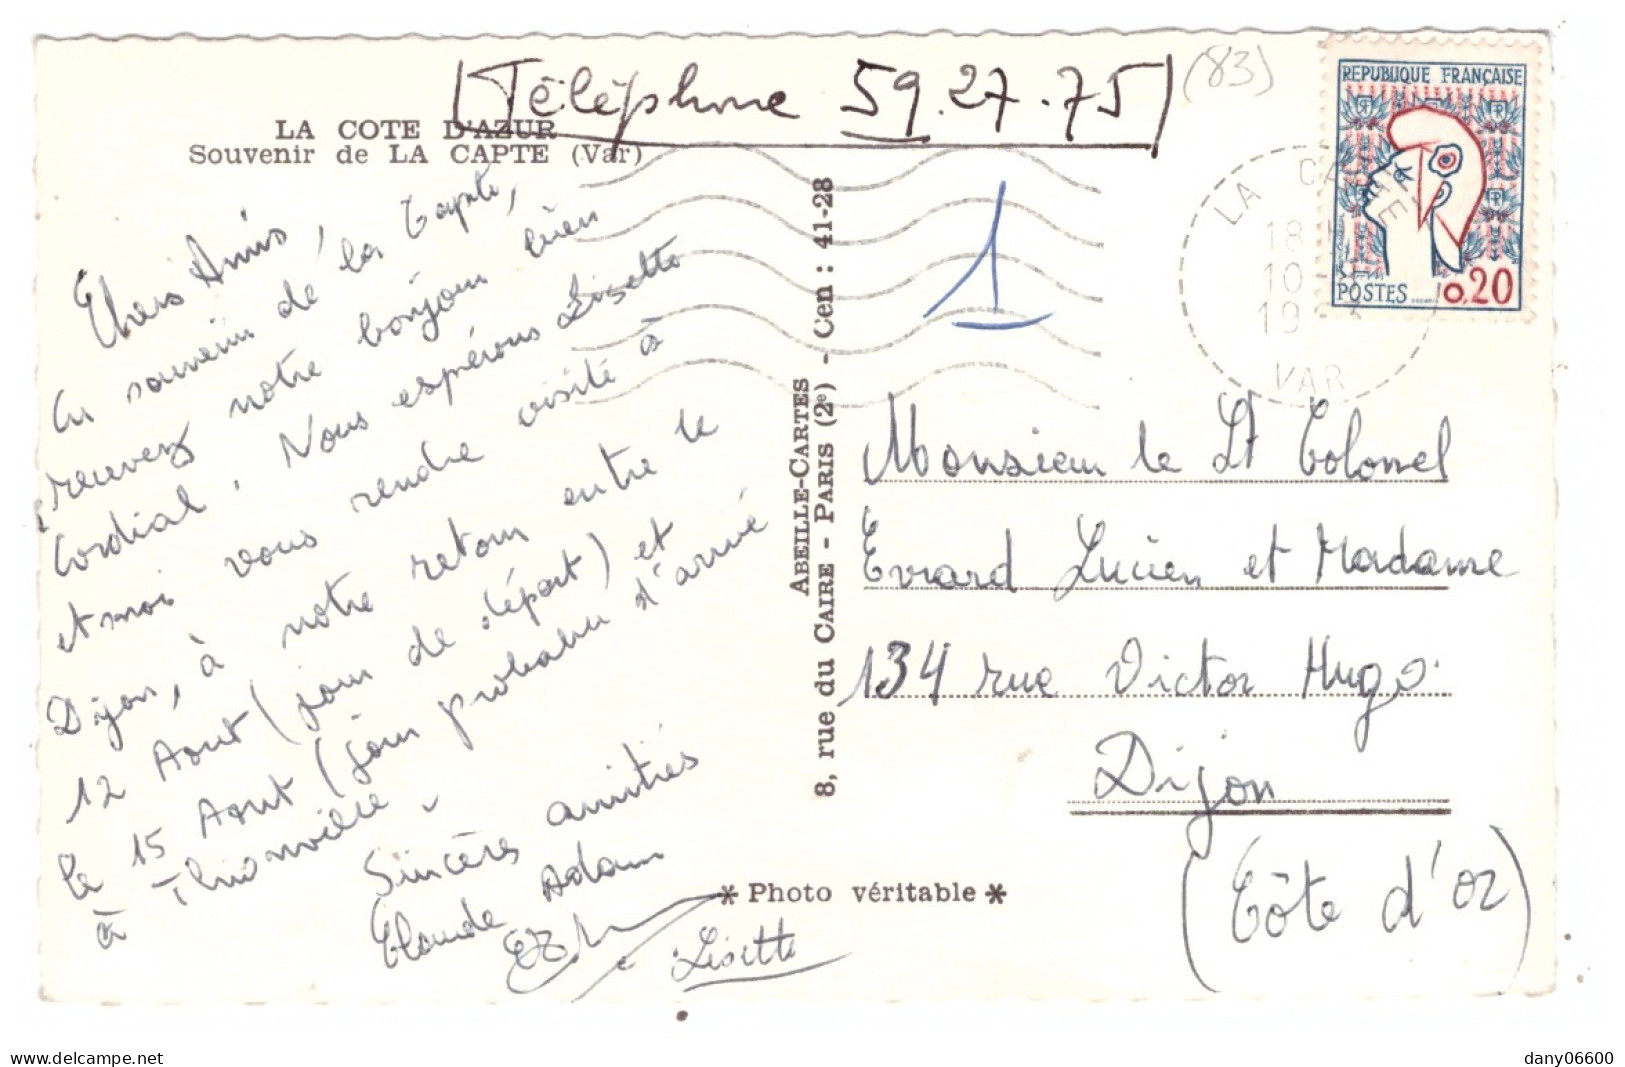 (Téléphone 59.27.75)
(83)
LA COTE D'AZUR
Souvenir de LA CAPTE (Var)
Chers Amis,
En souvenir de la Capte,
recevez notre bonjour bien
Cordial. Nous espérons Lisette
et moi vous rendre visite à
Dijon, à notre retour entre le
12 Aout (jour de départ) et
le 15 Aout (jour probable d'arrivé
à Thionville.
Sincères amitiés
Claude Adam
Lisette
ABEILLE-CARTES
8, rue du CAIRE - PARIS (2e) - Cen : 41-28
* Photo véritable *
1
REPUBLIQUE FRANÇAISE
POSTES
0,20
LA CAPTE
18 H
10
19
VAR
Monsieur le Lt Colonel
Evrard Lucien et Madame
134 rue Victor Hugo
Dijon
(Côte d'Or)
www.delcampe.net
dany06600